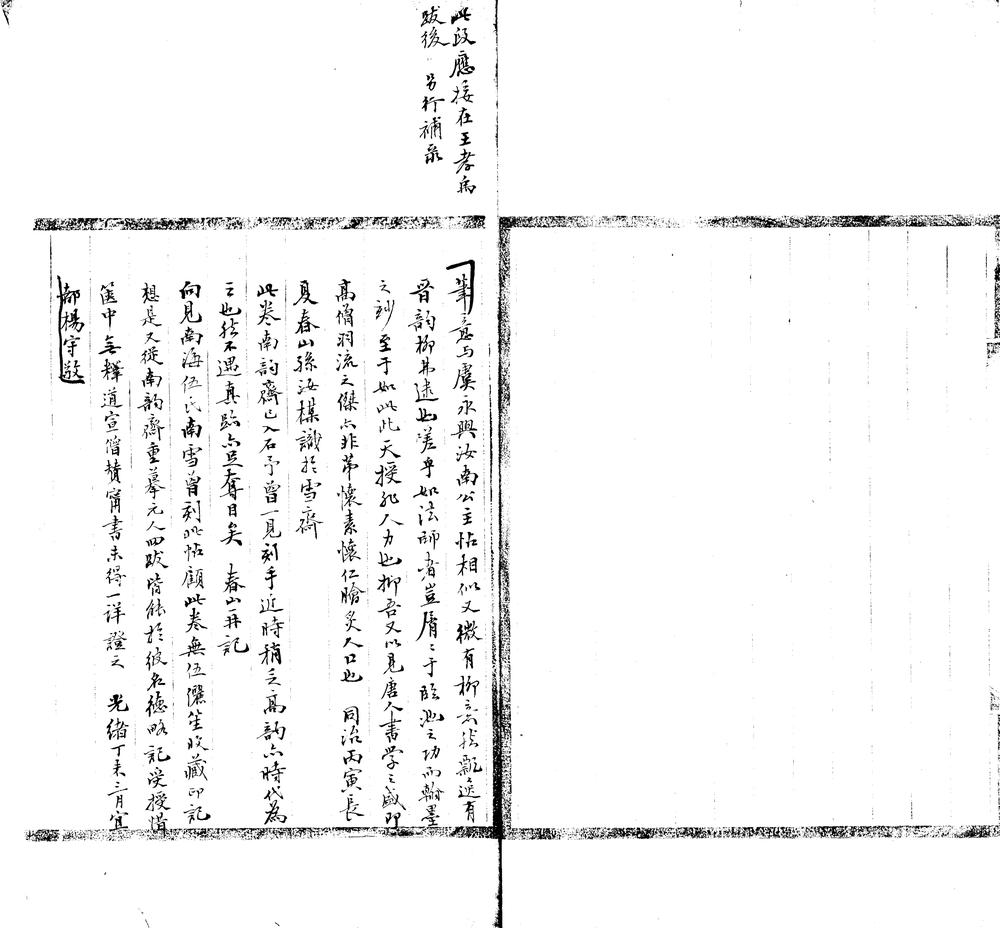 此段應接在王孝禹
跋後 另行補录
筆意与虞永興汝南公主帖相似又微有柳意然飄逸有
晉韵柳弗逮也嗟乎如法師者豈屑〻于臨池之功而翰墨
之妙至于如此此天授非人力也抑吾又以見唐人書學之盛即
高僧羽流之傑亦非第懷素懷仁膾炙人口也 同治丙寅長
夏春山孫汝楳識於雪齋
此卷南韵齋已入石予曾一見刻手近時稍乏高韵亦時代為
之也然不遇真跡亦足奪目矣 春山再記
向見南海伍氏南雪曾刻此帖顧此卷無伍儷笙收藏印記
想是又從南韵齋重摹元人四跋皆能於彼名德略記受授惜
篋中無釋道宣僧贊甯書未得一详證之 光緒丁未三月宜
都楊守敬